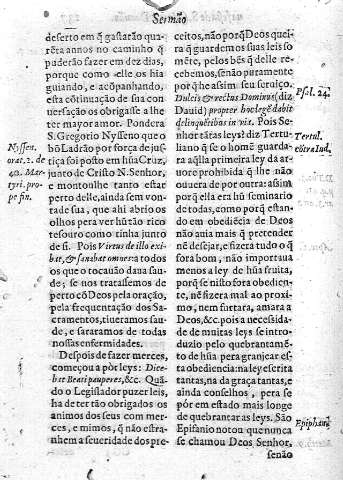 Sermão
deserto em q̃ gastarão qua-
rẽta annos no caminho q̃
puderão fazer em dez dias,
porque como elle os hia
guiando, e acõpanhando,
esta cõtinuação de sua con
uersação os obrigasse a lhe
ter mayor amor. Pondera
S. Gregorio Nysseno que o
bõ Ladrão por força de jus-
tiça foi posto em hũa Cruz,
junto de Cristo N. Senhor,
e montoulhe tanto estar
perto delle, ainda sem von-
tade sua, que ahi abrio os
olhos pera ver hũ tão rico
tesouro como tinha junto
de si. Pois Virtus de illo exi-
bat, & sanabat omnes: a todos
os que o tocauão daua sau-
de; se nos tratassemos de
perto cõ Deos pela oração,
pela frequentação dos Sa-
cramentos, tiueramos sau-
de, e sararamos de todas
nossas enfermidades.
Despois de fazer merces,
começou a pòr leys: Dice-
bat Beati pauperes, &c. Quã-
do o Legislador puzer leis,
ha de ter tão obrigados os
animos dos seus com mer-
ces, e mimos, q̃ não estra-
nhem a seueridade dos pre-
Nyssen.
orat. 2. de
40. Mar-
tyri. pro-
pe fin.
ceitos, não porq̃ Deos quei-
ra q̃ guardemos suas leis so
mẽte, pelos bẽs q̃ delle re-
cebemos, senão puramente
por q̃ he assim seu seruiço.
Dulcis & rectus Dominus (diz
Dauid) propter hoc legẽ dabit
delinquẽtibus in via. Pois Se-
nhor tãtas leys? diz Tertu-
liano q̃ se o homẽ guarda-
ra aq̃lla primeira ley da ar-
uore prohibida q̃ não
ouuera de por outra: assim
porq̃ ella era hũ seminario
de todas, como porq̃ estan-
do em obediẽcia de Deos
não auia mais q̃ preten-
nẽ desejar, e fizera tudo o q̃
fora bom, não importaua
menos a ley de hũa fruita,
porq̃ se nisto fora obedien-
te, nẽ fizera mal ao proxi-
mo, nem furtara, amara a
Deos, &c. pois a necessida-
de de muitas leys se intro-
duzio pelo quebrantamẽ-
to de hũa pera granjear es-
ta obediencia: na ley escrita
tantas, na da graça tantas, e
ainda conselhos, pera se
pór em estado mais longe
de quebrantar as leys. São
Epifanio notou que nunca
se chamou Deos Senhor,
senão
Psal. 24.
Tertul.
cõtra Iud.
Epiphani